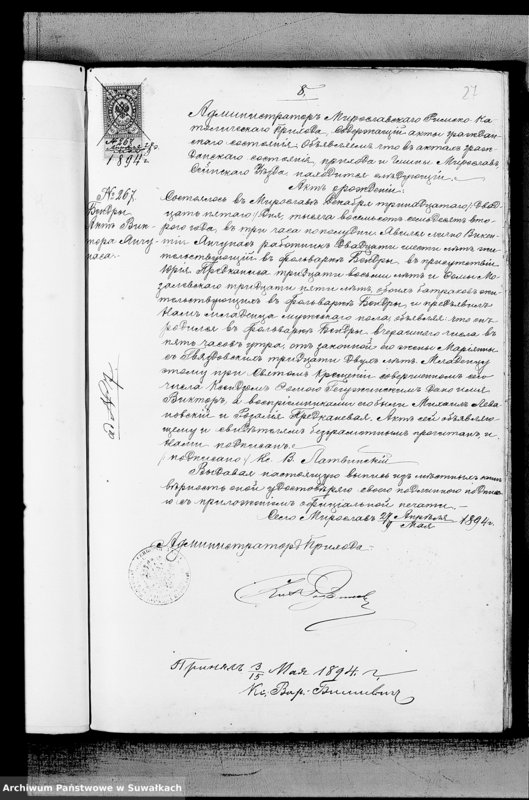 8.
27
№ 268
1894 г
Администраторъ Мирославскаго Римско-Ка-
толическаго Прихода, содержащій акты граждан-
скаго состоянія объявляетъ что въ актахъ граж-
данскаго состоянія, прихода и гмины Мирославъ
Сейнскаго Уѣзда находится слѣдующій.
Актъ о рожденіи:
№ 267.
Бендры
Актъ Вик-
тора Янчу-
наса.
Состоялось въ Мирославѣ Декабря тринадцатаго (двад-
цать пятаго) дня, тысяча восемьсотъ семьдесятъ вто-
рого года, въ три часа пополудни. Явился лично Викен-
тій работникъ двадцати шести лѣтъ жи-
тельствующій въ фольваркѣ Бендры, въ присутствіи
Юрія тридцати восьми лѣтъ и
тридцати пяти лѣтъ, обоихъ батраковъ жи-
тельствующихъ въ фольваркѣ Бендры, и предъявилъ
намъ младенца мужескаго пола, объявляя что онъ
родился въ фольваркѣ Бендры вчерашняго числа въ
пять часовъ утра, отъ законной его жены
тридцати двухъ лѣтъ. Младенцу
этому при Святомъ Крещеніи совершенномъ сего
числа Ксендзомъ дано имя
Викторъ, а воспріемниками его были Михаилъ
и Розалія. Актъ сей объявляю-
щему и свидѣтелямъ безграмотнымъ прочитанъ и
нами подписанъ.
(подписано) Кс. В.
Выдавая настоящую выпись изъ мѣстныхъ книгъ
вѣрность оной удостовѣряю своею подписью
съ приложеніемъ официальной печати.
Село Мирославъ 27/9 Апрѣля/Мая 1894 г.
Администраторъ Прихода:
Принялъ 3/15 Мая 1894 г.
Кс. Вар.
Archiwum Państwowe w Suwałkach